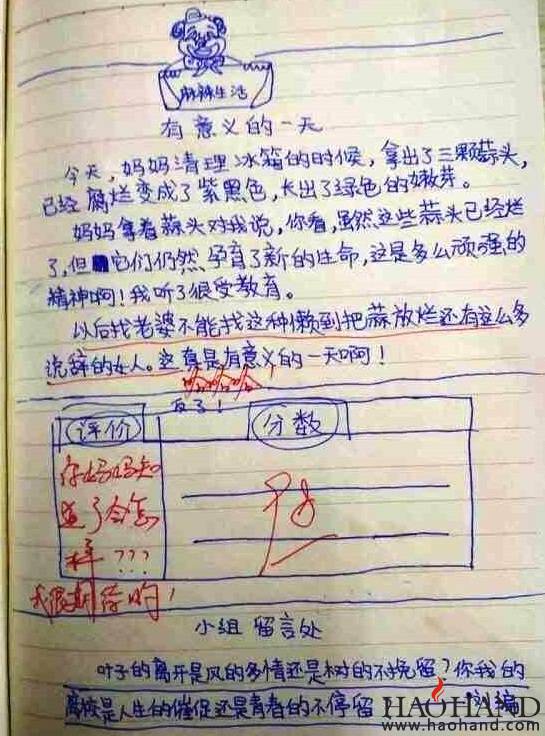 麻辣生活
有意义的一天
今天，妈妈清理冰箱的时候，拿出了三颗蒜头，
已经腐烂变成了紫黑色，长出了绿色的嫩芽。
妈妈拿着蒜头对我说，你看，虽然这些蒜头已经烂
了，但它们仍然孕育了新的生命，这是多么顽强的
精神啊！我听了很受教育。
以后找老婆不能找这种懒到把蒜放烂还有这么多
说辞的女人。这真是有意义的一天啊！
哈哈哈哈
反了！
评价
分数
你妈妈知
道了会怎
样？？？
我很期待哟！
98
小组留言处
叶子的离开是风的多情还是树的不挽留？你我的
离校是人生的催促还是青春的不停留
HAOHAND
www.haohand.com